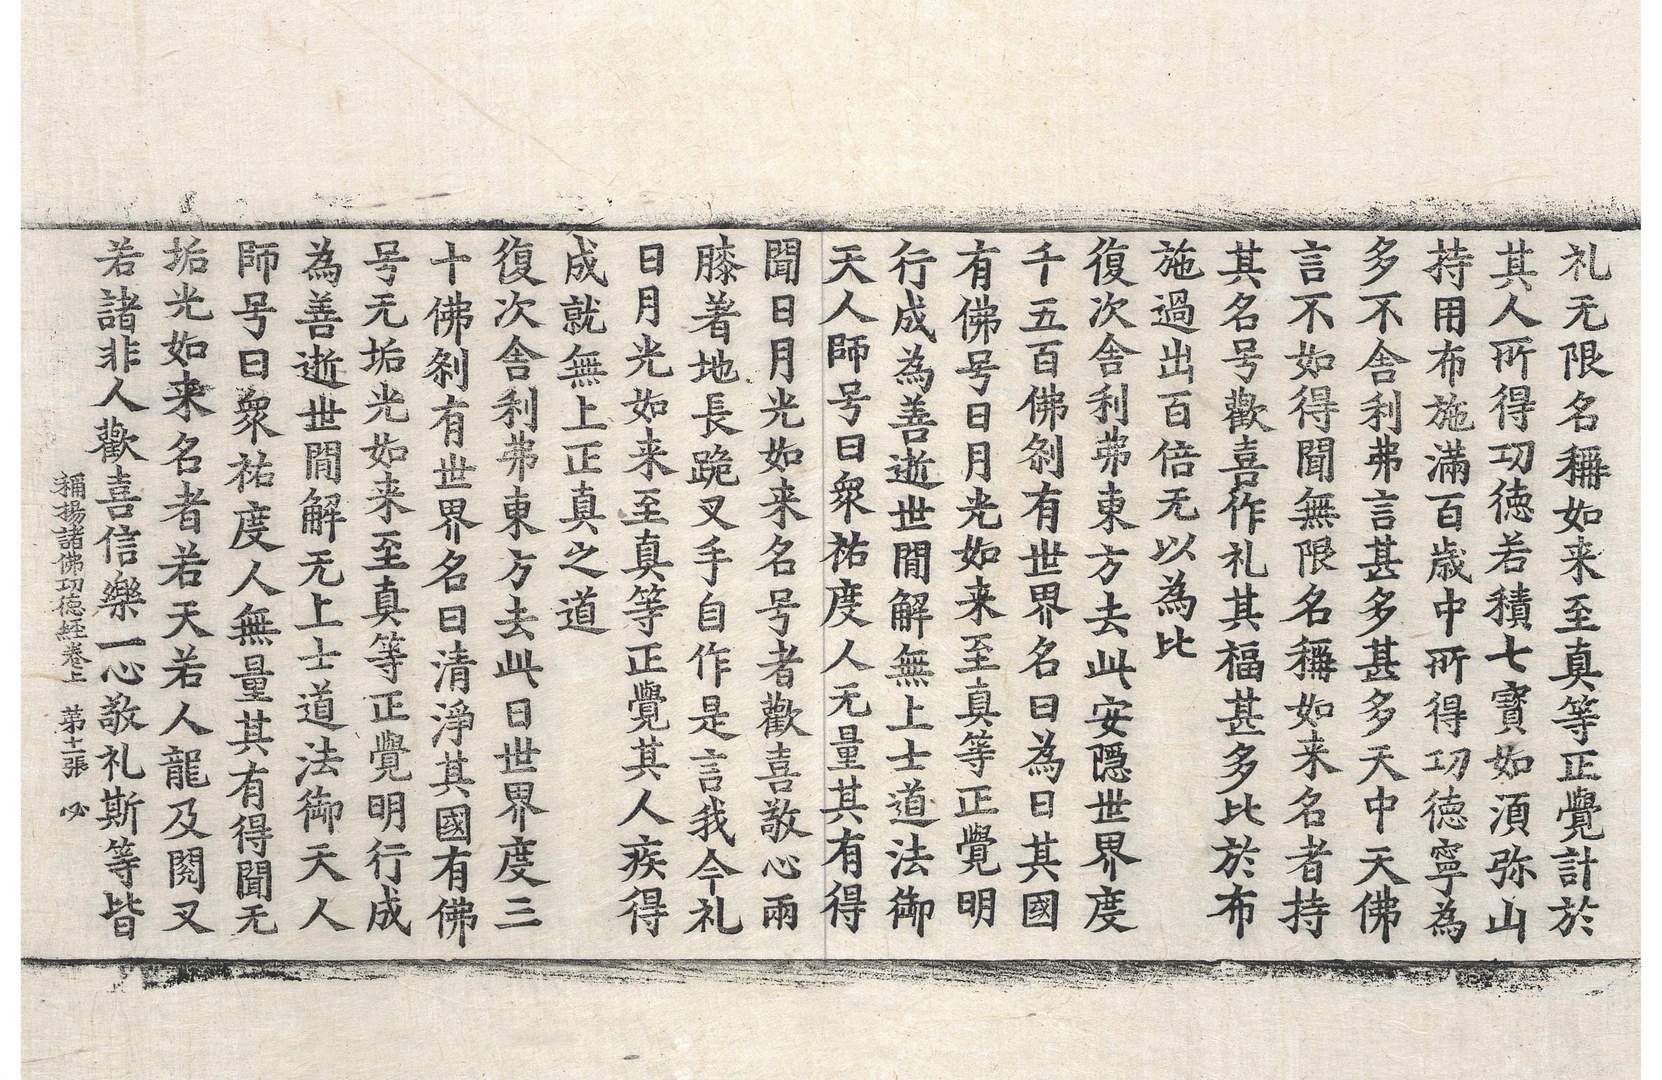 礼无限名稱如来至真等正覺計於
其人所得切德若積七寳如湏弥山
持用布施滿百歳中所得切德寧為
多不舎利弗言甚多甚多天中天佛
言不如得聞無限名稱如来名者持
其名号歡喜作礼其福甚多比於布
施過出百倍无以為比
復次舎利弗東方去此安隱世界度
千五百佛刹有世界名曰為日其國
有佛号日月光如来至真等正覺明
行成為善逝世間解無上士道法御
天人師号曰衆祐度人无量其有得
聞日月光如来名号者歡喜敬心兩
膝著地長跪叉手自作是言我今礼
日月光如来至真等正覺其人疾得
成就無上正真之道
復次舎利弗東方去此日世界度三
十佛刹有世界名曰清淨其國有佛
号无垢光如来至真等正覺明行成
為善逝世間解无上士道法御天人
師号曰衆祐度人無量其有得聞无
垢光如来名者若天若人龍及閱叉
若諸非人歡喜信樂一心敬礼斯等皆
稱揚諸佛功德經卷上 苐十二張